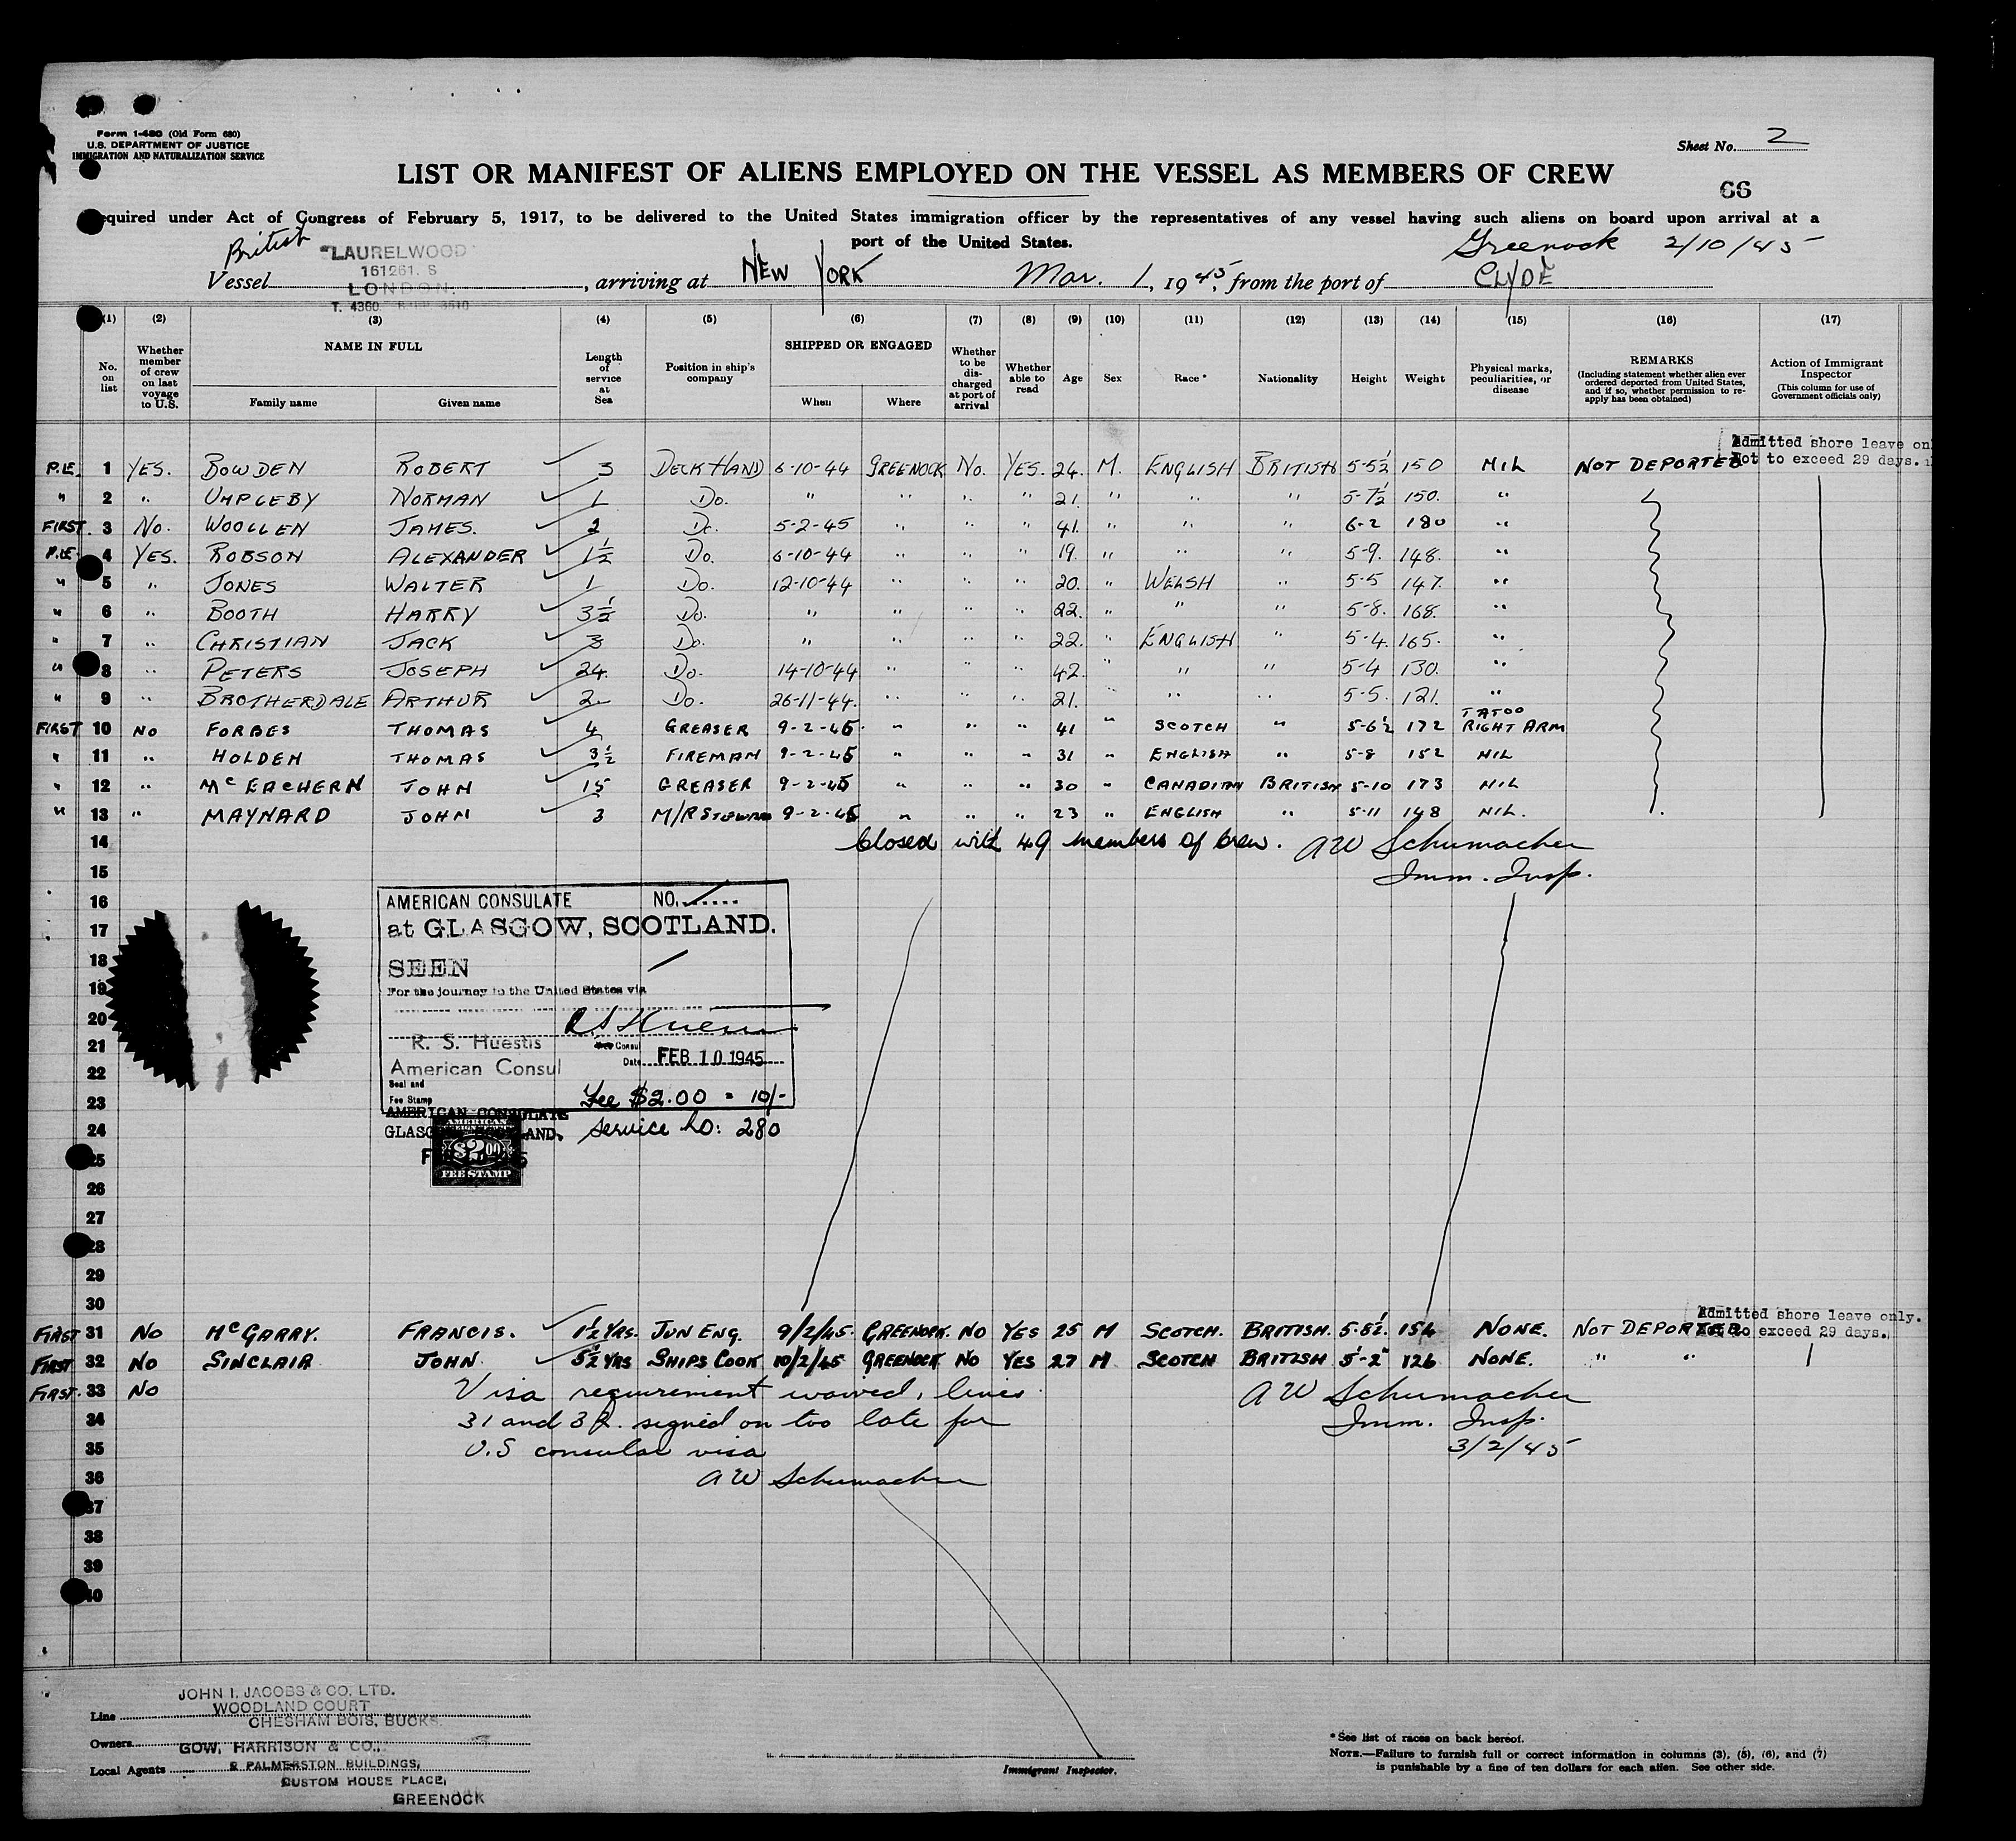 Form I-480 (Old Form 680)
U.S. DEPARTMENT OF JUSTICE
IMMIGRATION AND NATURALIZATION SERVICE
Sheet No. 2
LIST OR MANIFEST OF ALIENS EMPLOYED ON THE VESSEL AS MEMBERS OF CREW
66
equired under Act of Congress of February 5, 1917, to be delivered to the United States immigration officer by the representatives of any vessel having such aliens on board upon arrival at a
port of the United States.
British
Greenock 2/10/45
Vessel "LAURELWOOD" 161261. S LONDON. T. 4360, arriving at NEW YORK Mar. 1, 1945, from the port of CLYDE
(1) (2) (3) (4) (5) (6) (7) (8) (9) (10) (11) (12) (13) (14) (15) (16) (17)
No. on list
Whether member of crew on last voyage to U.S.
NAME IN FULL
Family name
Given name
Length of service at Sea
Position in ship's company
SHIPPED OR ENGAGED
When
Where
Whether to be discharged at port of arrival
Whether able to read
Age
Sex
Race *
Nationality
Height
Weight
Physical marks, peculiarities, or disease
REMARKS
(Including statement whether alien ever ordered deported from United States, and if so, whether permission to re-apply has been obtained)
Action of Immigrant Inspector
(This column for use of Government officials only)
Admitted shore leave on
Not to exceed 29 days.
P.LE. 1 YES. BOWDEN ROBERT 3 DECK HAND 6-10-44 GREENOCK No. YES. 24. M. ENGLISH BRITISH 5-5½ 150 NIL NOT DEPORTED
" 2 " UMPLEBY NORMAN 1 Do. " " " " 21. " " " 5-7½ 150. "
FIRST. 3 No. WOOLLEN JAMES. 2 Do. 5-2-45 " " " 41. " " " 6-2 180 "
P.LE. 4 YES. ROBSON ALEXANDER 1½ Do. 6-10-44 " " " 19. " " " 5-9. 148. "
" 5 " JONES WALTER 1 Do. 12-10-44 " " " 20. " WELSH " 5-5 147. "
" 6 " BOOTH HARRY 3½ Do. " " " " 22. " " " 5-8. 168. "
" 7 " CHRISTIAN JACK 3 Do. " " " " 22. " ENGLISH " 5-4. 165. "
" 8 " PETERS JOSEPH 24. Do. 14-10-44 " " " 42. " " " 5-4 130. "
" 9 " BROTHERDALE ARTHUR 2 Do. 26-11-44. " " " 21. " " " 5-5. 121. "
FIRST 10 NO FORBES THOMAS 4 GREASER 9-2-45 " " " 41 " SCOTCH " 5-6½ 172 TATOO RIGHT ARM
" 11 " HOLDEN THOMAS 3½ FIREMAN 9-2-45 " " " 31 " ENGLISH " 5-8 152 NIL
" 12 " McEACHERN JOHN 15 GREASER 9-2-45 " " " 30 " CANADIAN BRITISH 5-10 173 NIL
" 13 " MAYNARD JOHN 3 M/R STEWARD 9-2-45 " " " 23 " ENGLISH " 5-11 148 NIL.
14 Closed with 49 members of crew. AW Schumacher
15 Imm. Insp.
16
17
18
19
20
21
22
23
24
25
26
27
28
29
30
AMERICAN CONSULATE NO.
at GLASGOW, SCOTLAND.
SEEN
For the journey to the United States via
R S Huestis
R. S. Huestis
Vice Consul
American Consul
Date FEB 10 1945
Seal and
Fee Stamp
Fee $2.00 = 10/-
AMERICAN CONSULATE
GLASGOW, SCOTLAND.
Service No: 280
AMERICAN
$2.00
FEE STAMP
Admitted shore leave only.
Not to exceed 29 days.
FIRST 31 NO McGARRY. FRANCIS. 1½ YRS. JUN ENG. 9/2/45 GREENOCK. NO YES 25 M SCOTCH. BRITISH. 5-8½ 154 NONE. NOT DEPORTED
FIRST 32 NO SINCLAIR JOHN. 5½ YRS SHIPS COOK 10/2/45 GREENOCK NO YES 27 M SCOTCH BRITISH 5-2 126 NONE. " "
FIRST. 33 NO Visa requirement waived, lines AW Schumacher
34 31 and 32. signed on too late for Imm. Insp.
35 U.S consular visa 3/2/45
36 AW Schumacher
37
38
39
40
Line JOHN I. JACOBS & CO. LTD.
WOODLAND COURT
CHESHAM BOIS, BUCKS.
Owners
GOW, HARRISON & CO.,
Local Agents 2 PALMERSTON BUILDINGS,
CUSTOM HOUSE PLACE,
GREENOCK
Immigrant Inspector.
* See list of races on back hereof.
NOTE.—Failure to furnish full or correct information in columns (3), (5), (6), and (7)
is punishable by a fine of ten dollars for each alien. See other side.